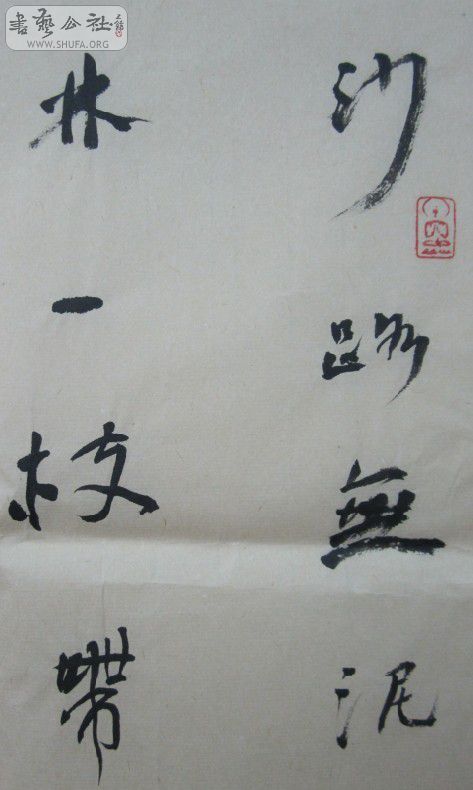 沙路無泥
林一枝帶
書藝公社
WWW.SHUFA.ORG